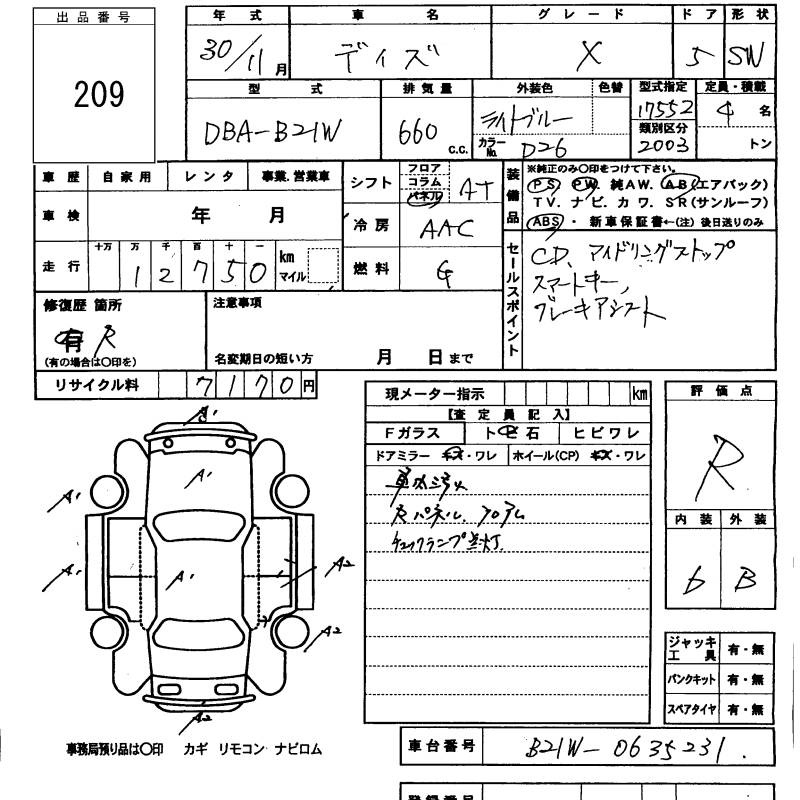 出品番号
209
年式 車名 グレード ドア 形状
30/11月 デイズ X 5 SW
型式 排気量 外装色 色替 型式指定 定員・積載
DBA-B21W 660 c.c. ライトブルー 17552 4名
カラーNo. D26 類別区分 2003 トン
車歴 自家用 レンタ 事業.営業車
車検 年 月
走行 十万 万 千 百 十 一 km マイル
12750
シフト フロア コラム パネル AT
冷房 AAC
燃料 G
装備品
※純正のみ○印をつけて下さい。
PS PW 純AW. AB(エアバック)
TV. ナビ. カワ. SR(サンルーフ)
ABS・新車保証書←(注)後日送りのみ
セールスポイント
CD、アイドリングストップ
スマートキー,
ブレーキアシスト
修復歴 箇所
有 R
(有の場合は○印を)
注意事項
名変期日の短い方 月 日まで
リサイクル料 7170円
現メーター指示 km
【査定員記入】
Fガラス トビ石 ヒビワレ
ドアミラー キズ・ワレ ホイール(CP) キズ・ワレ
Rパネル、フロアム
チェックランプ点灯.
評価点
R
内装 外装
6 B
ジャッキ工具 有・無
パンクキット 有・無
スペアタイヤ 有・無
A1
A1
A1
A1
A1
A2
A2
A2
事務局預り品は○印 カギ リモコン ナビロム
車台番号 B21W-0635231.
登録番号